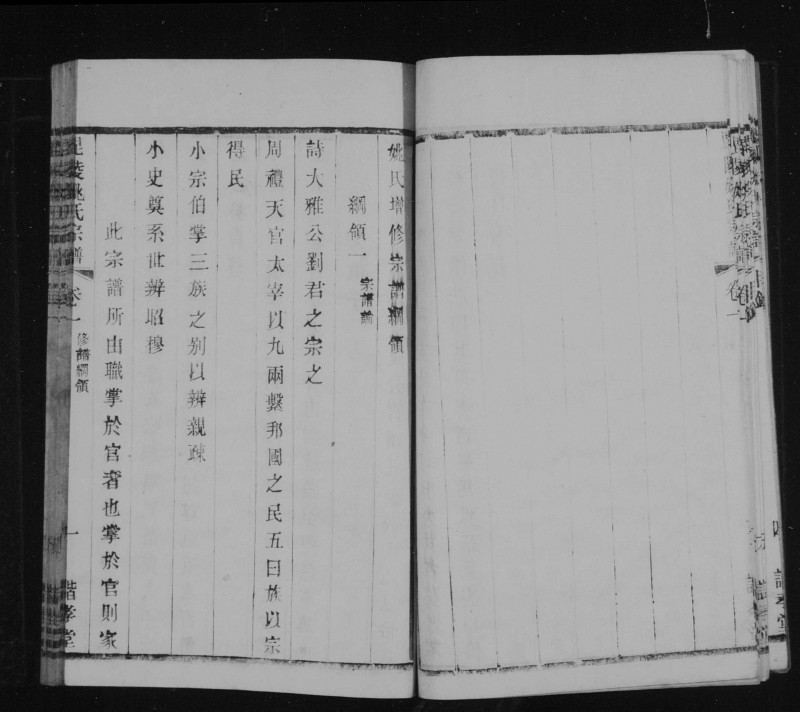 姚氏增修宗譜綱領
綱領一 宗譜論
詩大雅公劉君之宗之
周禮天官太宰以九兩繫邦國之民五曰族以宗
得民
小宗伯掌三族之别以辨親疎
小史奠系世辨昭穆
此宗譜所由職掌於官者也掌於官則家
毘陵姚氏宗譜 卷一 修譜綱領 一 諧孝堂
卷一